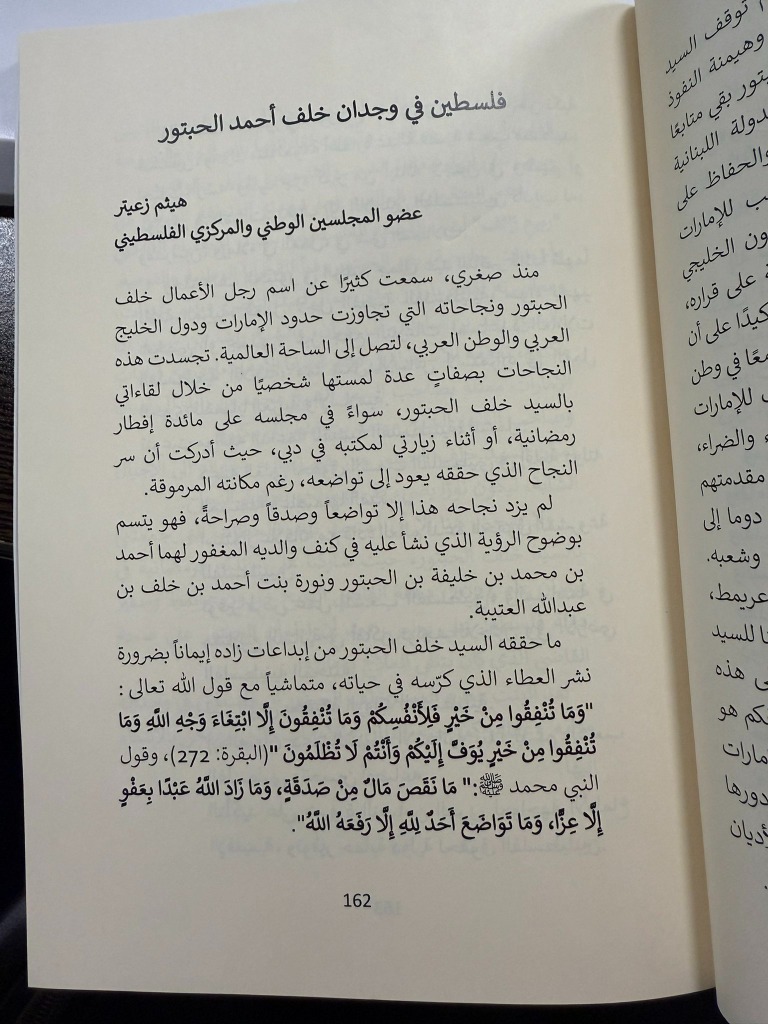 فلسطين في وجدان خلف أحمد الحبتور
هيثم زعيتر
عضو المجلسين الوطني والمركزي الفلسطيني
منذ صغري، سمعت كثيرًا عن اسم رجل الأعمال خلف
الحبتور ونجاحاته التي تجاوزت حدود الإمارات ودول الخليج
العربي والوطن العربي، لتصل إلى الساحة العالمية. تجسدت هذه
النجاحات بصفاتٍ عدة لمستها شخصيًا من خلال لقاءاتي
بالسيد خلف الحبتور، سواءً في مجلسه على مائدة إفطار
رمضانية، أو أثناء زيارتي لمكتبه في دبي، حيث أدركت أن سر
النجاح الذي حققه يعود إلى تواضعه، رغم مكانته المرموقة.
لم يزد نجاحه هذا إلا تواضعاً وصدقاً وصراحةً، فهو يتسم
بوضوح الرؤية الذي نشأ عليه في كنف والديه المغفور لهما أحمد
بن محمد بن خليفة بن الحبتور ونورة بنت أحمد بن خلف بن
عبدالله العتيبة.
ما حققه السيد خلف الحبتور من إبداعات زاده إيماناً بضرورة
نشر العطاء الذي كرّسه في حياته، متماشياً مع قول الله تعالى :
"وَمَا تُنْفِقُوا مِنْ خَيْرٍ فَلِأَنْفُسِكُمْ وَمَا تُنْفِقُونَ إِلَّا ابْتِغَاءَ وَجْهِ اللَّهِ وَمَا
تُنْفِقُوا مِنْ خَيْرٍ يُوَفَّ إِلَيْكُمْ وَأَنْتُمْ لَا تُظْلَمُونَ "(البقرة: 272)، وقول
النبي محمد ﷺ:" مَا نَقَصَ مَالٌ مِنْ صَدَقَةٍ، وَمَا زَادَ اللَّهُ عَبْدًا بِعَفْوٍ
إِلَّا عِزًّا، وَمَا تَوَاضَعَ أَحَدٌ لِلَّهِ إِلَّا رَفَعَهُ اللَّهُ".
162
توقف السيد
وهيمنة النفوذ
بقي متابعًا
اللبنانية
والحفاظ على
للإمارات
الخليجي
على قراره،
على أن
في وطن
للإمارات
والضراء،
مقدمتهم
دوما إلى
وشعبه.
عريمط،
للسيد
هذه
هو